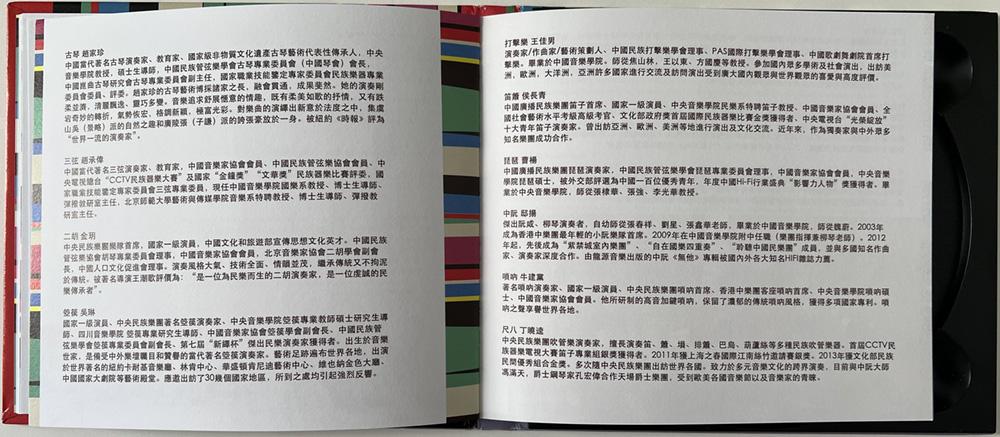 古琴 趙家珍
中國當代著名古琴演奏家、教育家、國家級非物質文化遺產古琴藝術代表性傳承人，中央
音樂學院教授，碩士生導師，中國民族管弦樂學會古琴專業委員會（中國琴會）會長，
中國崑曲古琴研究會古琴專業委員會副主任，國家職業技能鑒定專家委員會民族樂器專業
委員會委員、評委。趙老師的古琴藝術博採諸家之長，融會貫通，成果斐然。她的演奏剛
柔並濟，清麗飄逸、靈巧多變。音樂追求舒展愜意的情趣，既有柔美如歌的抒情，又有跌
宕奇妙的轉折，氣勢恢宏，格調新穎，極富光彩。對樂曲的演繹出新意於法度之中，集虞
山吳（景略）派的自然之趣和廣陵張（子謙）派的誇張豪放於一身。被紐約《時報》評為
“世界一流的演奏家”。
三弦 趙承偉
中國當代著名三弦演奏家、教育家，中國音樂家協會會員、中國民族管弦樂協會會員、中
央電視總台“CCTV民族器樂大賽”及國家“金鐘獎”“文華獎”民族器樂比賽評委，國
家職業技能鑒定專家委員會三弦專業委員，現任中國音樂學院國樂系教授、博士生導師、
彈撥教研室主任，北京師範大學藝術與傳媒學院音樂系特聘教授、博士生導師、彈撥教
研室主任。
二胡 金玥
中央民族樂團樂隊首席，國家一級演員，中國文化和旅遊部宣傳思想文化英才。中國民族
管弦樂協會胡琴專業委員會理事，中國音樂家協會會員，北京音樂家協會二胡學會副會
長，中國人口文化促進會理事。演奏風格大氣、技術全面、情韻並茂，繼承傳統又不拘泥
於傳統。被著名導演王潮歌評價為：“是一位為民樂而生的二胡演奏家，是一位虔誠的民
樂傳承者”。
箜篌 吳琳
國家一級演員、中央民族樂團著名箜篌演奏家、中央音樂學院箜篌專業教師碩士研究生導
師、四川音樂學院 箜篌專業研究生導師，中國音樂家協會箜篌學會副會長、中國民族管
弦樂學會箜篌專業委員會副會長、第七屆“新繹杯”傑出民樂演奏家獲得者。出生於音樂
世家，是備受中外樂壇矚目和贊譽的當代著名箜篌演奏家。藝術足跡遍布世界各地，出演
於世界著名的紐約卡耐基音樂廳、林肯中心、華盛頓肯尼迪藝術中心、維也納金色大廳、
中國國家大劇院等藝術殿堂。應邀出訪了30幾個國家地區，所到之處均引起強烈反響。
打擊樂 王佳男
演奏家/作曲家/藝術策劃人、中國民族打擊樂學會理事、PAS國際打擊樂學會理事、中國歌劇舞劇院首席打
擊樂。畢業於中國音樂學院。師從焦山林，王以東、方國慶等教授。參加國內眾多學術及社會演出，出訪美
洲，歐洲，大洋洲，亞洲許多國家進行交流及訪問演出受到廣大國內觀眾與世界觀眾的喜愛與高度評價。
笛簫 侯長青
中國廣播民族樂團笛子首席、國家一級演員、中央音樂學院民樂系特聘笛子教授、中國音樂家協會會員、全
國社會藝術水平考級高級考官、文化部政府獎首屆國際民族器樂比賽金獎獲得者、中央電視台“光榮綻放”
十大青年笛子演奏家。曾出訪亞洲、歐洲、美洲等地進行演出及文化交流。近年來，作為獨奏家與中外眾多
知名樂團成功合作。
琵琶 曹楊
中國廣播民族樂團琵琶演奏家，中國民族管弦樂學會琵琶專業委員會理事，中國音樂家協會會員，中央音樂
學院琵琶碩士，被外交部評選為中國一百位優秀青年，年度中國HI-FI行業盛典“影響力人物”獎獲得者。畢
業於中央音樂學院，師從張棣華、張強、李光華教授。
中阮 邸揚
傑出阮咸、柳琴演奏者，自幼師從張春祥、劉星、張鑫華老師，畢業於中國音樂學院，師從魏蔚。2003年
成為香港中樂團最年輕的小阮樂隊首席。2009年在中國音樂學院附中任職（樂團指揮兼柳琴老師）。2012
年起，先後成為“紫禁城室內樂團”、“自在國樂四重奏”、“聆聽中國民樂團”成員，並與多國知名作曲
家、演奏家深度合作。由龍源音樂出版的中阮《無他》專輯被國內外各大知名HIFI雜誌力薦。
嗩吶 牛建黨
著名嗩吶演奏家、國家一級演員、中央民族樂團嗩吶首席、香港中樂團客座嗩吶首席、中央音樂學院嗩吶碩
士、中國音樂家協會會員。他所研制的高音加鍵嗩吶，保留了濃郁的傳統嗩吶風格，獲得多項國家專利。嗩
吶之聲享譽世界各地。
尺八 丁曉逵
中央民族樂團吹管樂演奏家，擅長演奏笛、簫、塤、排簫、巴烏、葫蘆絲等多種民族吹管樂器。首屆CCTV民
族器樂電視大賽笛子專業組銀獎獲得者。2011年獲上海之春國際江南絲竹邀請賽銀獎。2013年獲文化部民族
民間優秀組合金獎。多次隨中央民族樂團出訪世界各國。致力於多元音樂文化的跨界演奏，目前與中阮大師
馮滿天，爵士鋼琴家孔宏偉合作天場爵士樂團，受到歐美各國音樂節以及音樂家的青睞。